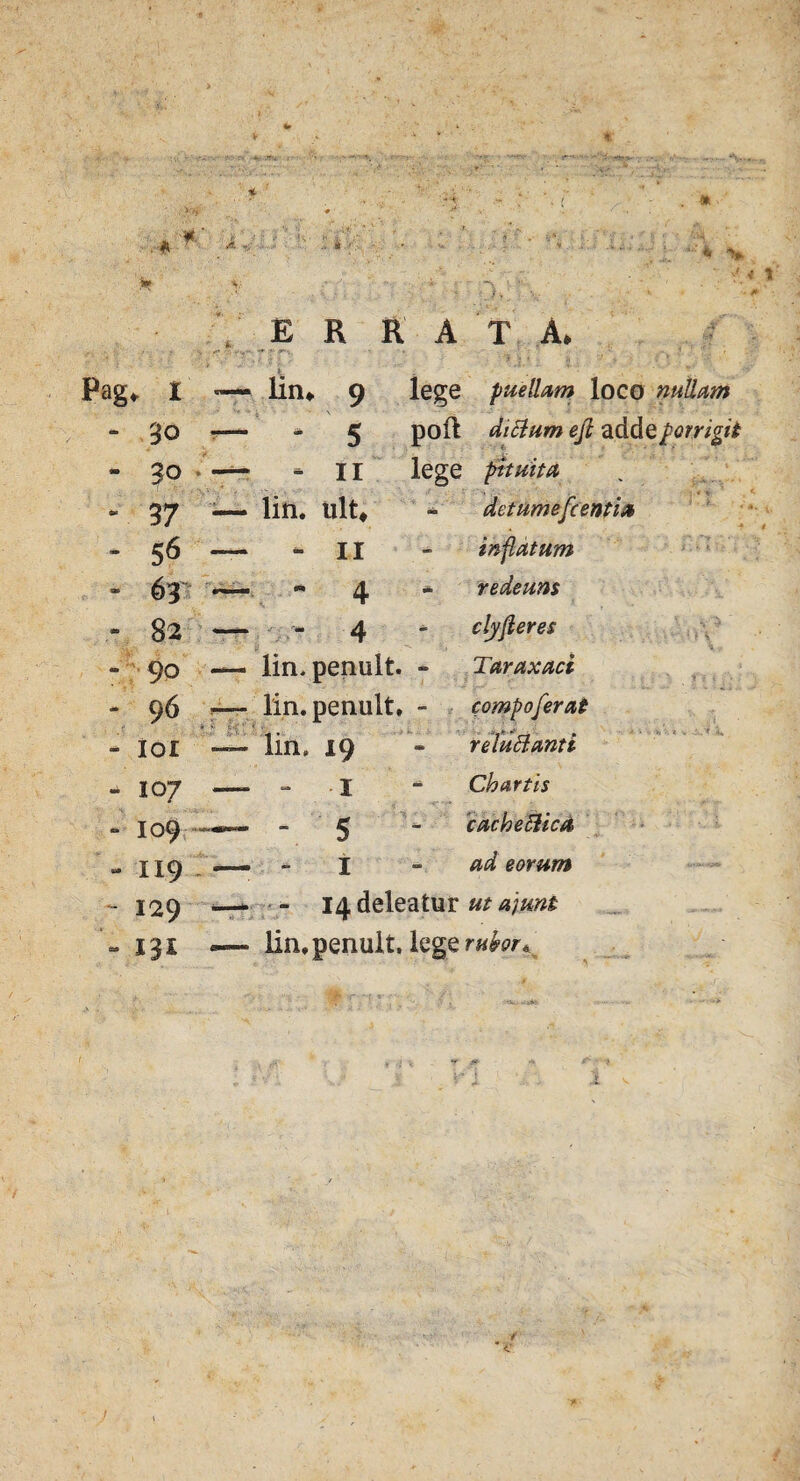 ERRATA.
Pag. 1 — lin. 9 lege puellam loco nullam
- 30 — - 5 poſt dictum eſt adde porrigit
- 30 — - 11 lege pituita
- 37 — lin. ult. - detumeſcentia
- 56 — - 11 - inflatum
- 63 — - 4 - redeuns
- 82 — - 4 - clyſteres
- 90 — lin. penult. - Taraxaci
- 96 — lin. penult. - compoſerat
- 101 — lin. 19 - reluctanti
- 107 — - 1 - Chartis
- 109 — - 5 - cachectica
- 119 — - 1 - ad eorum
- 129 — - 14 deleatur ut ajunt
- 131 — lin. penult. lege rubor.